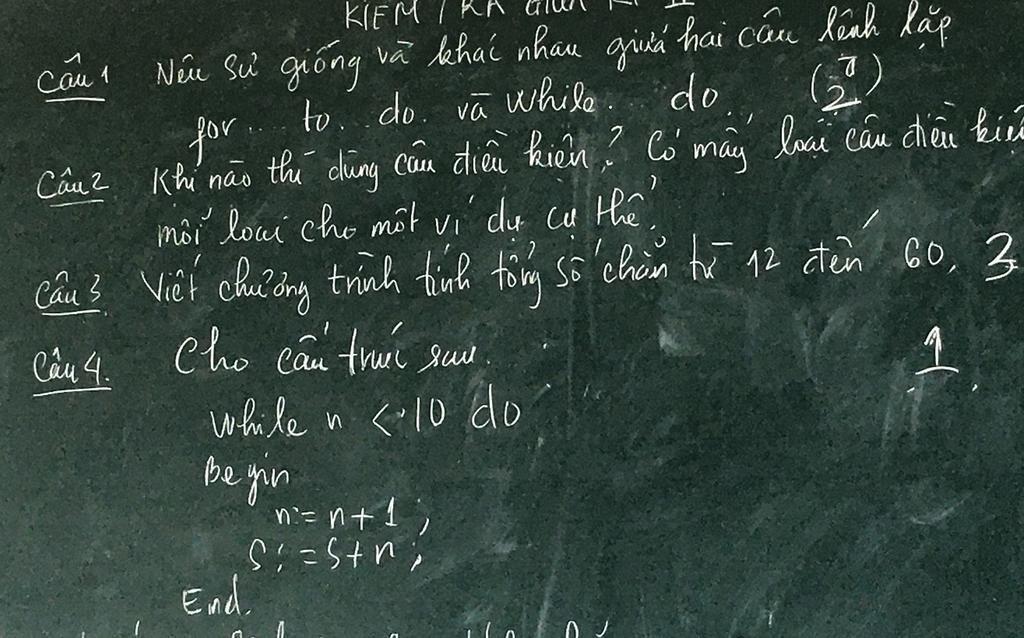 KIỂM TRA GIỮA KÌ II
Câu 1 Nêu sự giống và khác nhau giữa hai câu lệnh lặp
for... to... do. và While... do... (2đ)
Câu 2 Khi nào thì dùng câu điều kiện? Có mấy loại câu điều kiện
mỗi loại cho một ví dụ cụ thể.
Câu 3. Viết chương trình tính tổng số chẵn từ 12 đến 60. 3
Câu 4. Cho cấu trúc sau. 1
While n < 10 do
Begin
n:= n+1;
S:= S+n;
End.